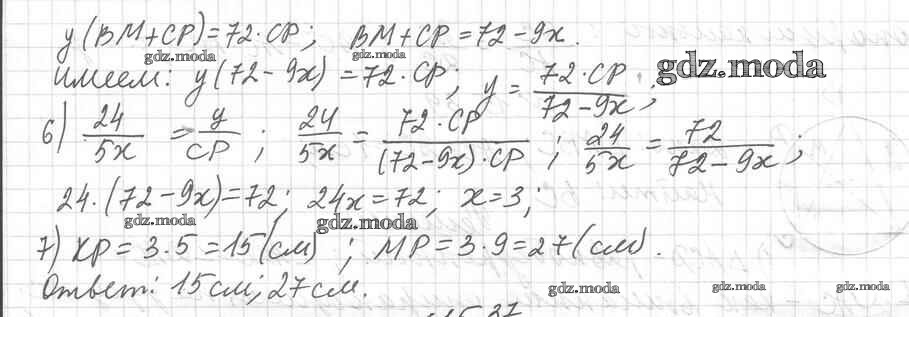 y(BM+CP)=72·CP; BM+CP=72-9x.
gdz.moda gdz.moda
имеем: y(72-9x)=72·CP; y=72·CP/(72-9x); gdz.moda
6) 24/5x=y/CP; 24/5x=72·CP/((72-9x)·CP); 24/5x=72/(72-9x);
24·(72-9x)=72; 24x=72; x=3;
gdz.moda gdz.moda
7) KP=3·5=15(см); MP=3·9=27(см).
Ответ: 15см; 27см.
gdz.moda gdz.moda gdz.moda